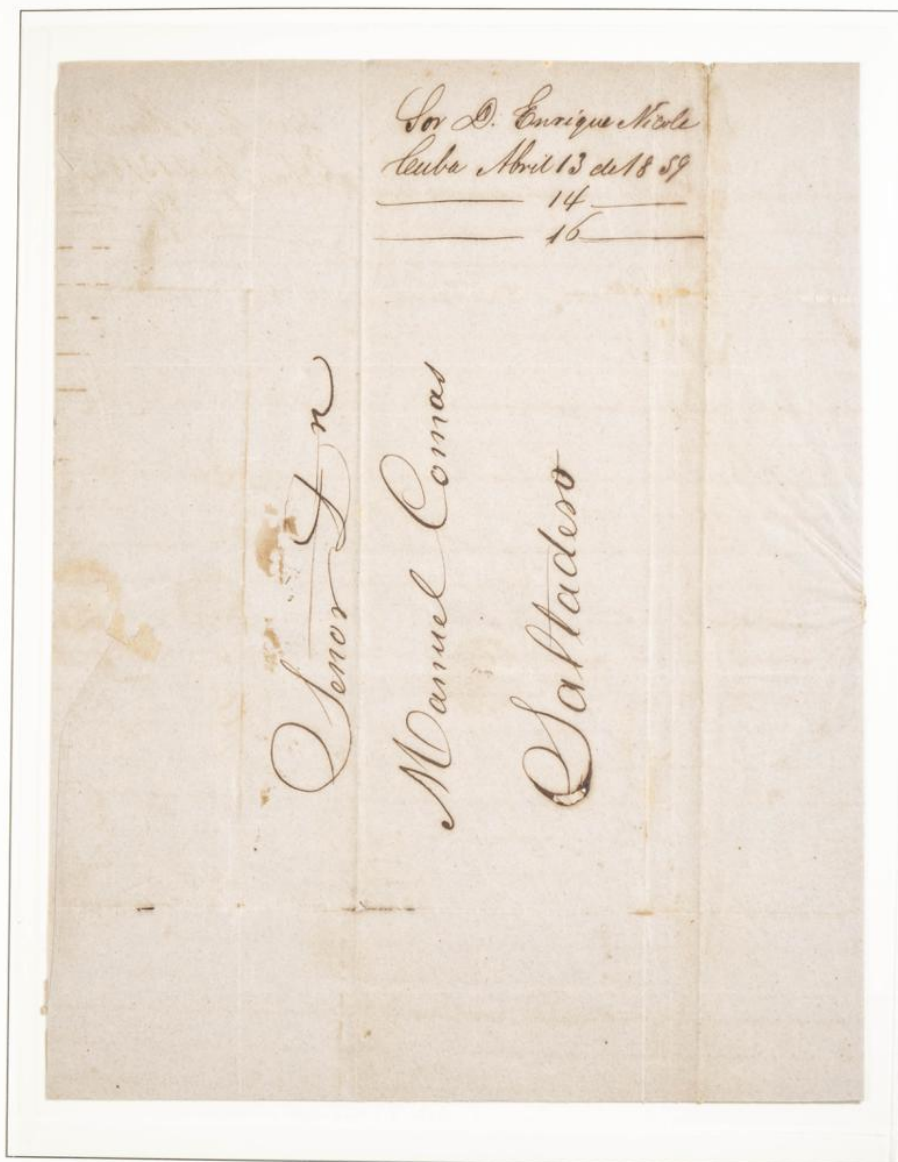 Sor D. Enrique Nicole
Cuba Abril 13 de 1859
14
16
Señor Dn
Manuel Comas
Saltadero